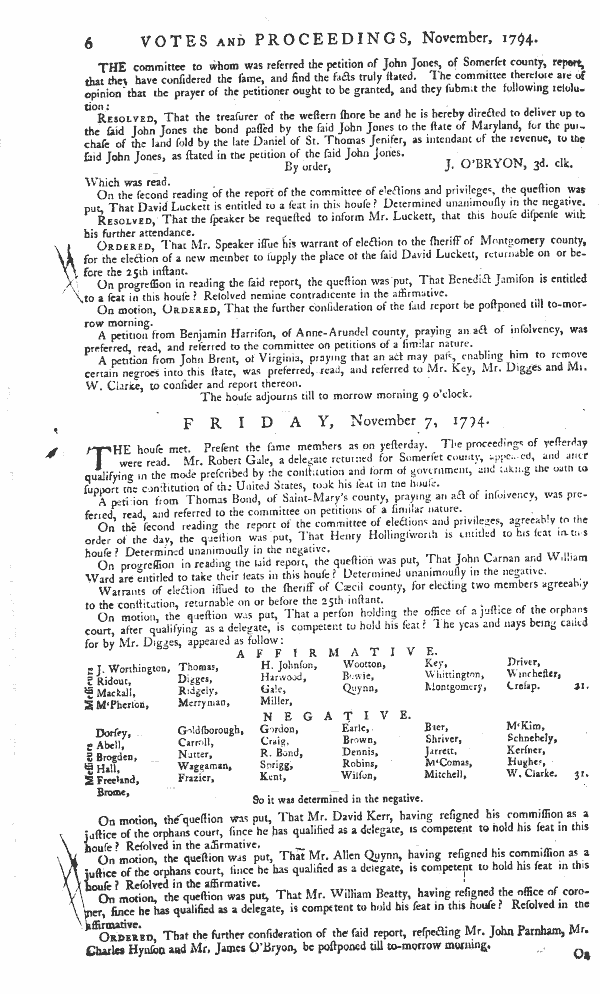 6 VOTES AND PROCEEDINGS, November, 1794.
THE committee to whom was referred the petition of John Jones, of Somerſet county, report,
that they have conſidered the ſame, and find the facts truly ſtated. The committee therefore are of
opinion that the prayer of the petitioner ought to be granted, and they ſubmit the following reſolu-
tion:
RESOLVED, That the treaſurer of the weſtern ſhore be and he is hereby directed to deliver up to
the ſaid John Jones the bond paſſed by the ſaid John Jones to the ſtate of Maryland, for the pur-
chaſe of the land ſold by the late Daniel of St. Thomas Jenifer, as intendant of the revenue, to the
ſaid John Jones, as ſtated in the petition of the ſaid John Jones.
By order, J. O'BRYON, 3d. clk.
Which was read.
On the ſecond reading of the report of the committee of elections and privileges, the queſtion was
put, That David Luckett is entitled to a ſeat in this houſe? Determined unanimouſly in the negative.
RESOLVED, That the ſpeaker be requeſted to inform Mr. Luckett, that this houſe diſpenſe with
his further attendance.
ORDERED, That Mr. Speaker iſſue his warrant of election to the ſheriff of Montgomery county,
for the election of a new member to ſupply the place of the ſaid David Luckett, returnable on or be-
fore the 25th inſtant.
On progreſſion in reading the ſaid report, the queſtion was put, That Benedict Jamiſon is entitled
to a ſeat in this houſe? Reſolved nemine contradicente in the affirmative.
On motion, ORDERED, That the further conſideration of the ſaid report be poſtponed till to-mor-
row morning.
A petition from Benjamin Harriſon, of Anne-Arundel county, praying an act of inſolvency, was
preferred, read, and referred to the committee on petitions of a ſimilar nature.
A petition from John Brent, of Virginia, praying that an act may paſs, enabling him to remove
certain negroes into this ſtate, was preferred, read, and referred to Mr. Key, Mr. Digges and Mr.
W. Clarke, to conſider and report thereon.
The houſe adjourns till to morrow morning 9 o'clock.
FRIDAY, November 7, 1794.
THE houſe met. Preſent the ſame members as on yeſterday. The proceedings of yeſterday
were read. Mr. Robert Gale, a delegate returned for Somerſet county, appeared, and after
qualifying in the mode preſcribed by the conſtitution and form of government, and taking the oath to
ſupport the conſtitution of the United States, took his ſeat in the houſe.
A petition from Thomas Bond, of Saint-Mary's county, praying an act of inſolvency, was pre-
ferred, read, and referred to the committee on petitions of a ſimilar nature.
On the ſecond reading the report of the committee of elections and privileges, agreeably to the
order of the day, the queſtion was put, That Henry Hollingſworth is entitled to his ſeat in this
houſe? Determined unanimouſly in the negative.
On progreſſion in reading the ſaid report, the queſtion was put, That John Carnan and William
Ward are entitled to take their ſeats in this houſe? Determined unanimouſly in the negative.
Warrants of election iſſued to the ſheriff of Cæcil county, for electing two members agreeably
to the conſtitution, returnable on or before the 25th inſtant.
On motion, the queſtion was put, That a perſon holding the office of a juſtice of the orphans
court, after qualifying as a delegate, is competent to hold his ſeat? The yeas and nays being called
for by Mr. Digges, appeared as follow:
AFFIRMATIVE.
Meſſieurs J. Worthington, Thomas, H. Johnſon, Wootton, Key, Driver,
Ridout, Digges, Harwood, Bowie, Whittington, Wincheſter,
Mackall, Ridgely, Gale, Quynn, Montgomery, Creſap. 21.
M'Pherſon, Merryman, Miller,
NEGATIVE.
Meſſieurs Dorſey, Goldſborough, Gordon, Earle, Bier, M'Kim,
Abell, Carroll, Craig, Brown, Shriver, Schnebely,
Brogden, Nutter, R. Bond, Dennis, Jarrett, Kerſner,
Hall, Waggaman, Sprigg, Robins, M'Comas, Hughes,
Freeland, Frazier, Kent, Wilſon, Mitchell, W. Clarke. 31.
Brome,
So it was determined in the negative.
On motion, the queſtion was put, That Mr. David Kerr, having reſigned his commiſſion as a
juſtice of the orphans court, ſince he has qualified as a delegate, is competent to hold his ſeat in this
houſe? Reſolved in the affirmative.
On motion, the queſtion was put, That Mr. Allen Quynn, having reſigned his commiſſion as a
juſtice of the orphans court, ſince he has qualified as a delegate, is competent to hold his ſeat in this
houſe? Reſolved in the affirmative.
On motion, the queſtion was put, That Mr. William Beatty, having reſigned the office of coro-
ner, ſince he has qualified as a delegate, is competent to hold his ſeat in this houſe? Reſolved in the
affirmative.
ORDERED, That the further conſideration of the ſaid report, reſpecting Mr. John Parnham, Mr.
Charles Hynſon and Mr. James O'Bryon, be poſtponed till to-morrow morning.
On